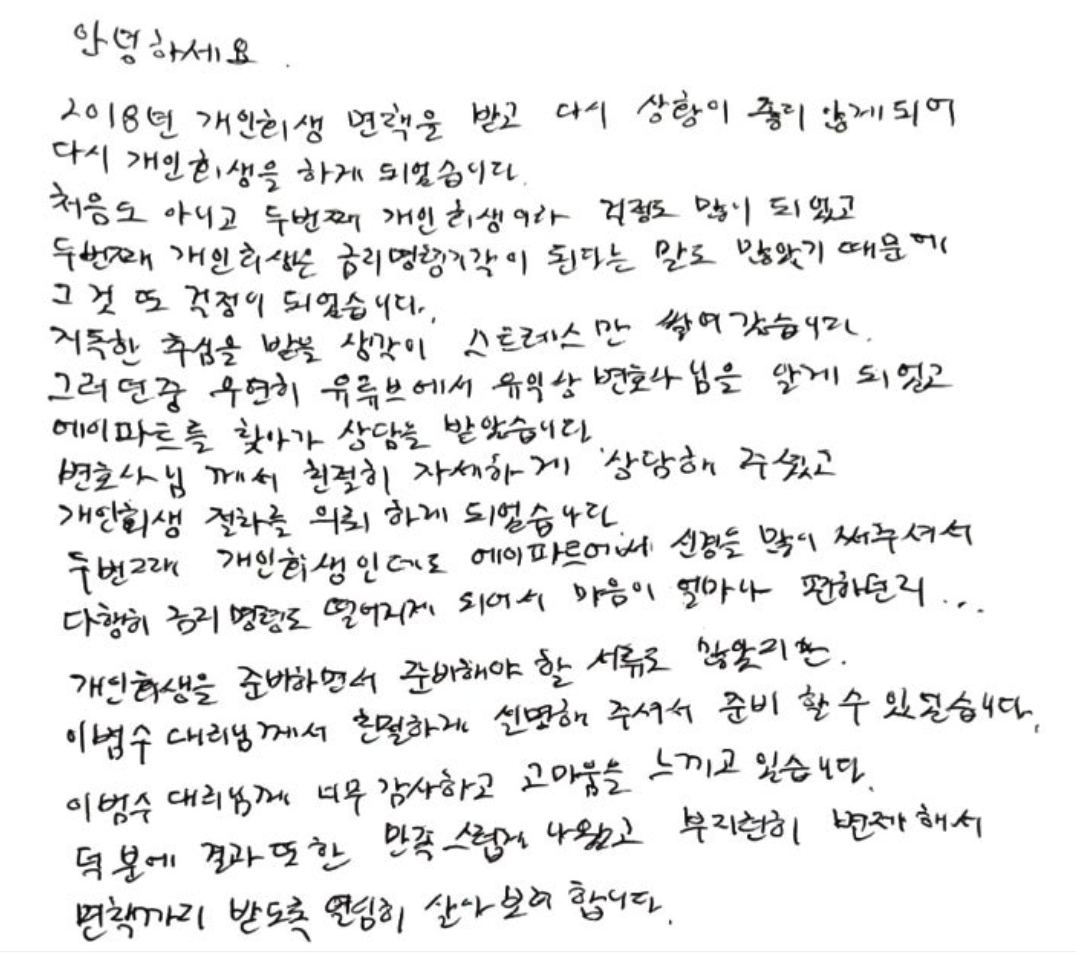 안녕하세요.
2018년 개인회생 면책을 받고 다시 상황이 좋지 않게되어
다시 개인회생을 하게 되었습니다.
처음도 아니고 두번째 개인회생이라 걱정도 많이 되었고
두번째 개인회생은 금지명령기각이 된다는 말도 많았기 때문에
그것 또 걱정이 되었습니다.
지독한 추심을 받을 생각이 스트레스만 쌓여갔습니다.
그러던중 우연히 유튜브에서 유익상변호사님을 알게 되었고
에이파트를 찾아가 상담을 받았습니다.
변호사님께서 친절히 자세하게 상담해 주셨고
개인회생 절차를 의뢰하게 되었습니다.
두번째 개인회생인데도 에이파트에서 신경을 많이 써주셔서
다행히 금지명령도 떨어지게 되어서 마음이 얼마나 편하던지...
개인회생을 준비하면서 준비해야 할 서류도 많았지만.
이범수 대리님께서 친절하게 설명해 주셔서 준비 할 수 있었습니다.
이범수 대리님께 너무 감사하고 고마움을 느끼고 있습니다.
덕분에 결과또한 만족스럽게 나왔고 부지런히 변제해서
면책까지 받도록 열심히 살아보려 합니다.